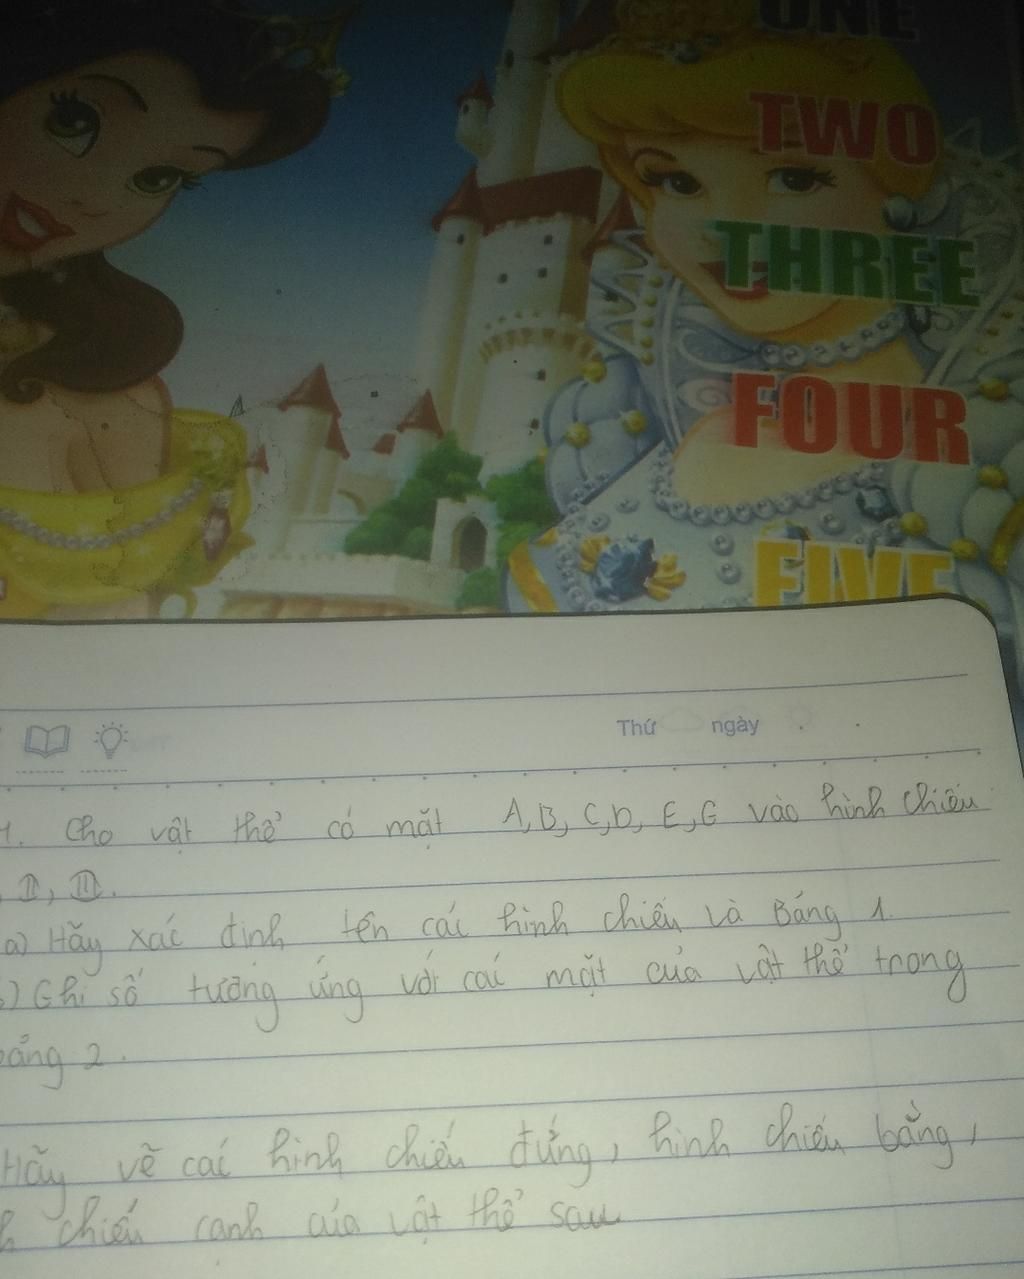 ONE
TWO
THREE
FOUR
FIVE
Thứ ngày
1. Cho vật thể có mặt A, B, C, D, E, G vào hình chiếu
II, III.
a) Hãy xác định tên các hình chiếu và Bảng 1.
b) Ghi số tương ứng với cái mặt của vật thể trong
bảng 2.
Hãy vẽ các hình chiếu đứng, hình chiếu bằng,
h chiếu cạnh của vật thể sau